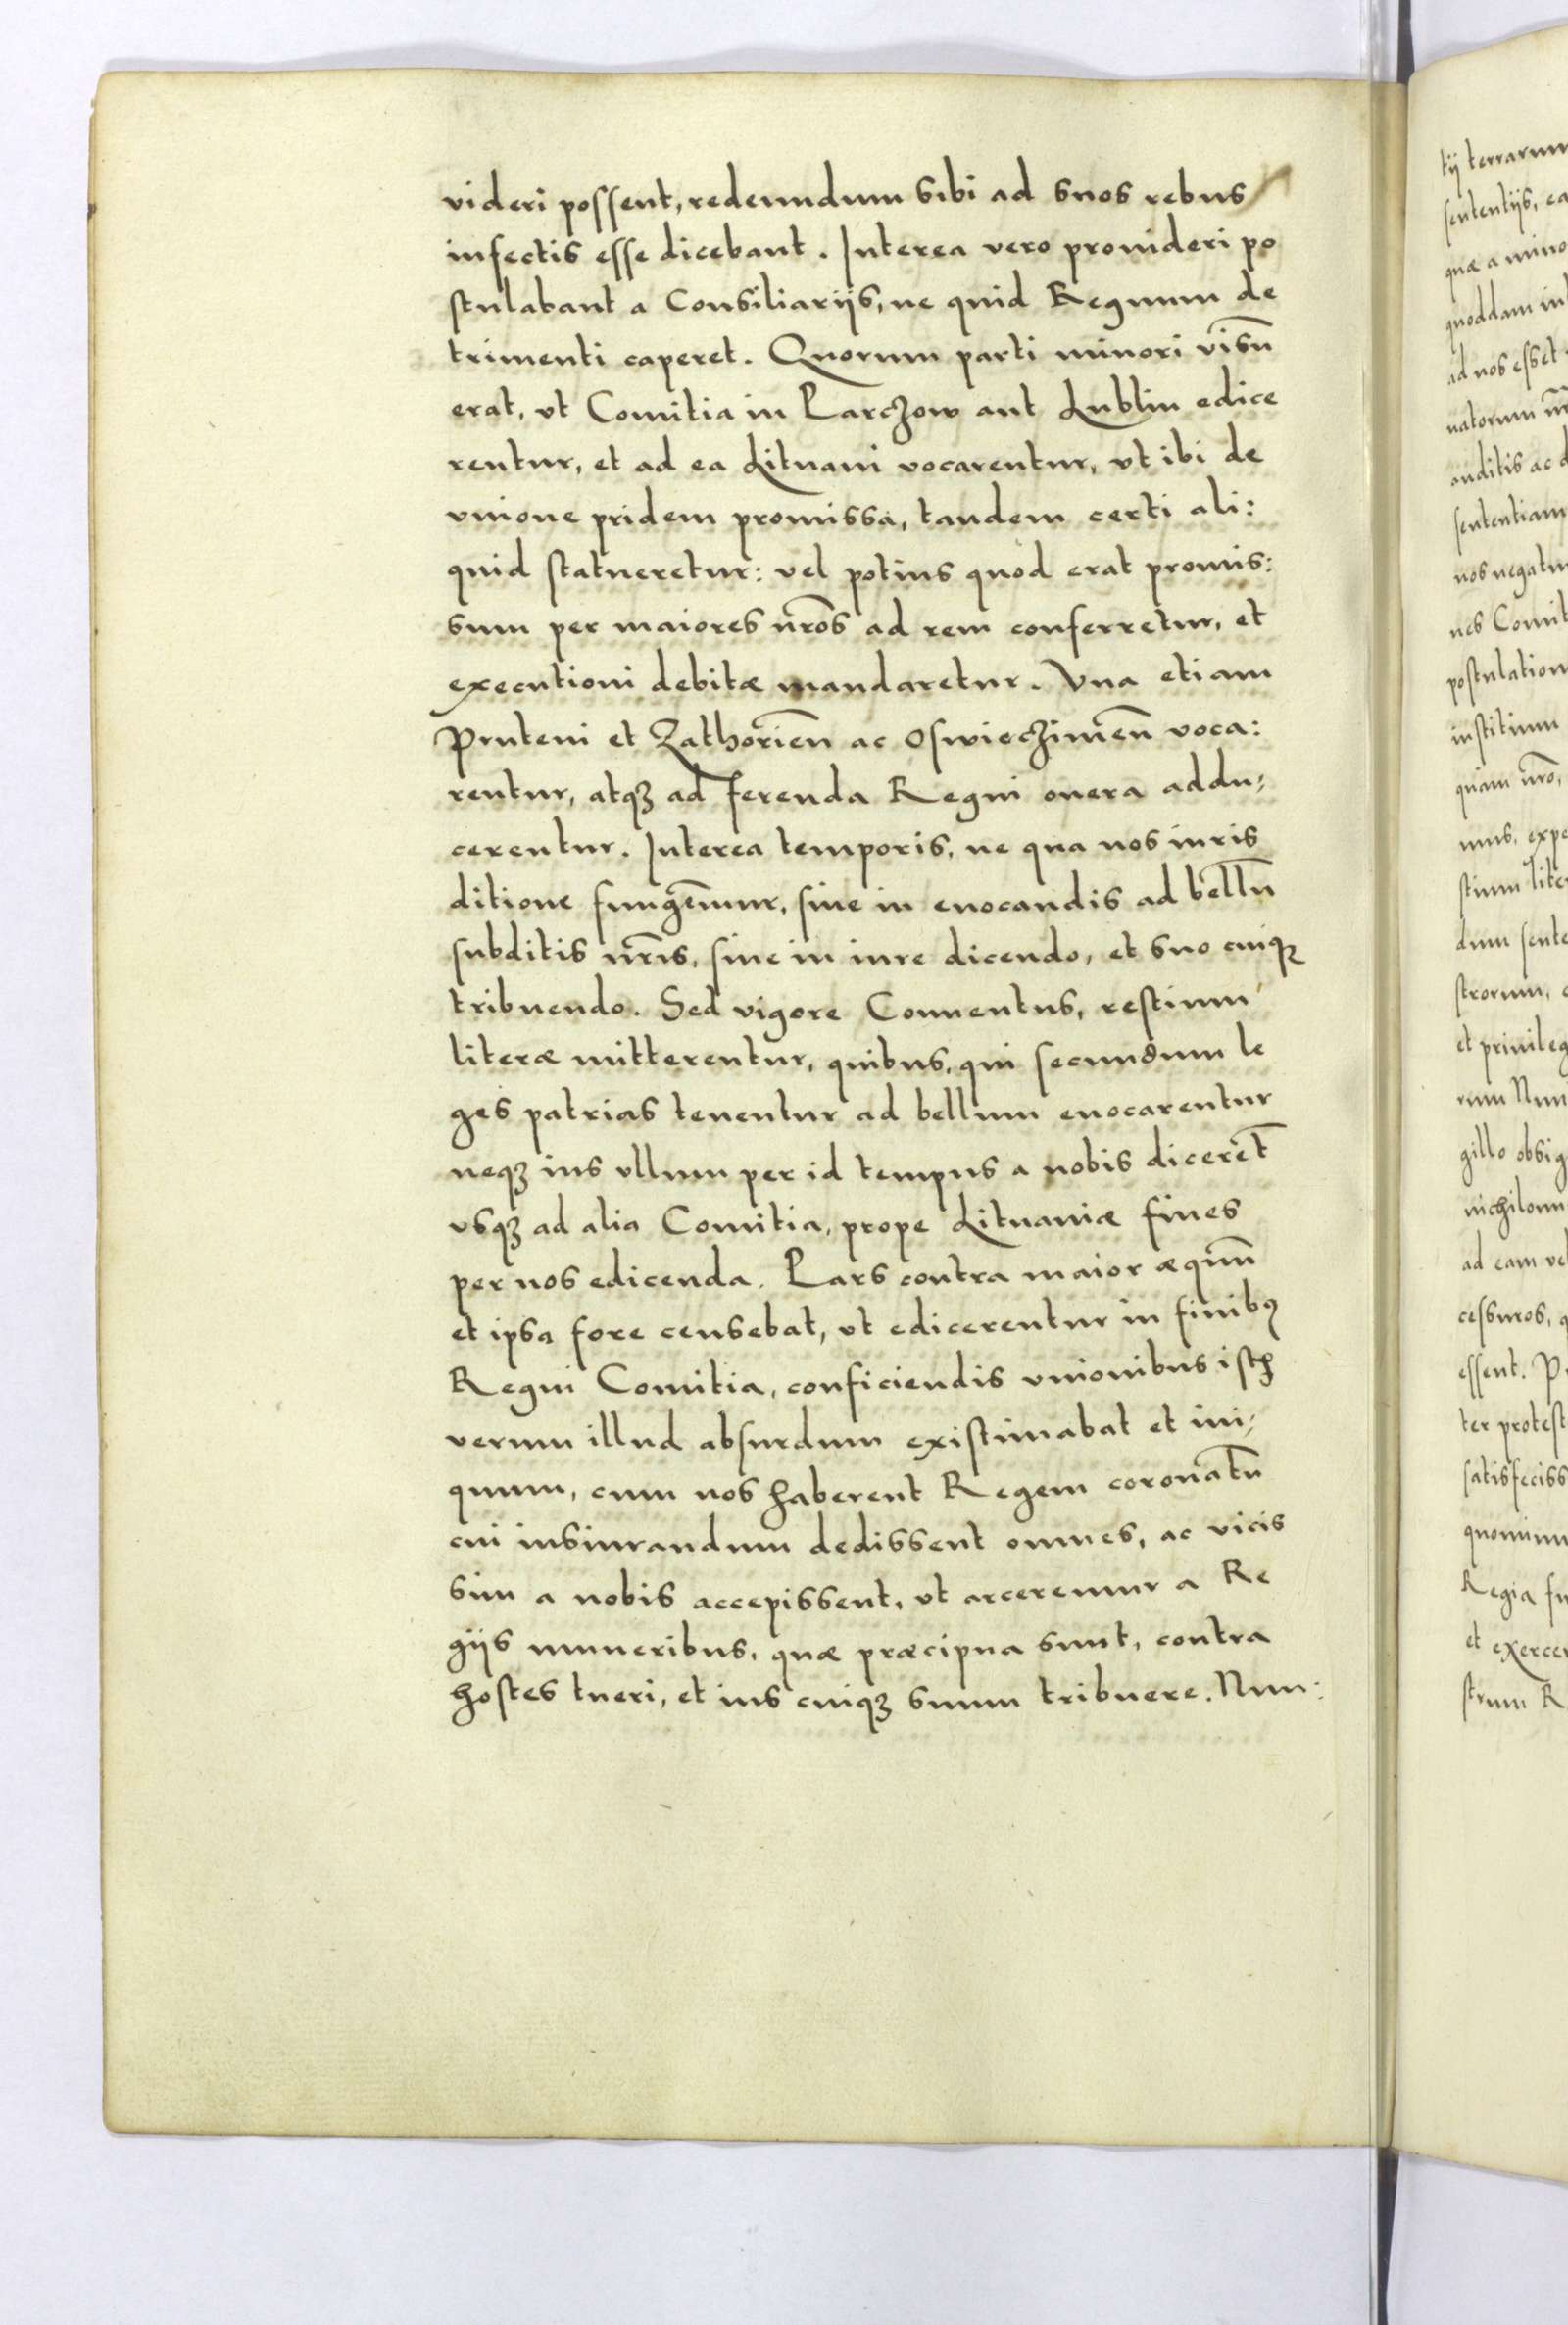 videri possent, redeundum sibi ad suos rebus
infectis esse dicebant. Interea vero prouideri po
stulabant a Consiliarijs, ne quid Regnum de
trimenti caperet. Quorum parti minori visū
erat, vt Comitia in Parczow aut Lublin edice
rentur, et ad ea Lituani vocarentur, vt ibi de
vnione pridem promissa, tandem certi ali:
quid statueretur: vel potius quod erat promis:
sum per maiores nr̄os ad rem conferretur, et
executioni debitæ mandaretur. Vna etiam
Pruteni et Zathorien̄ ac Oswieczimen̄ voca:
rentur, atqꝫ ad ferenda Regni onera addu,
cerentur. Interea temporis, ne qua nos iuris
ditione fungem̄ur, siue in euocandis ad bellū
subditis nr̄is, siue in iure dicendo, et suo cuiqꝫ
tribuendo. Sed vigore Conuentus, restium
literæ mitterentur, quibus, qui secundum le
ges patrias tenentur ad bellum euocarentur
neqꝫ ius vllum per id tempus a nobis diceret̄
vsqꝫ ad alia Comitia, prope Lituaniæ fines
per nos edicenda. Pars contra maior æquū
et ipsa fore censebat, vt edicerentur in finibꝰ
Regni Comitia, conficiendis vnionibus isth
verum illud absurdum existimabat et ini,
quum, cum nos haberent Regem coronatū
cui iusiurandum dedissent omnes, ac vicis
sim a nobis accepissent, vt arceremur a Re
gijs muneribus, quæ præcipua sunt, contra
hostes tueri, et ius cuiqꝫ suum tribuere. Nun:
tij terrarum
sententijs, ea
quæ a mino
quoddam in
ad nos esset
natorum nr̄
auditis ac d
sententiam
nos negatu
nes Comit
postulation
institium
quam nr̄o,
mus, expe
stium lite
dum sente
strorum,
et priuileg
rum Nun
gillo obsig
nichilom
ad eam ve
cessuros, q
essent. P
ter protest
satisfeciss
quominu
Regia fu
et exercer
strum R